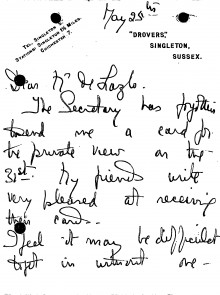 May 25th
TEL: SINGLETON
STATIONS SINGLETON 1½ MILES.
CHICHESTER 7.
"DROVERS,"
SINGLETON,
SUSSEX.
Dear Mr de Laszlo.
The Secretary has forgotten
to send me a card for
the private view on the
31st. My friends write
very pleased at receiving
their cards.
I feel it may be difficult
to get in without one -